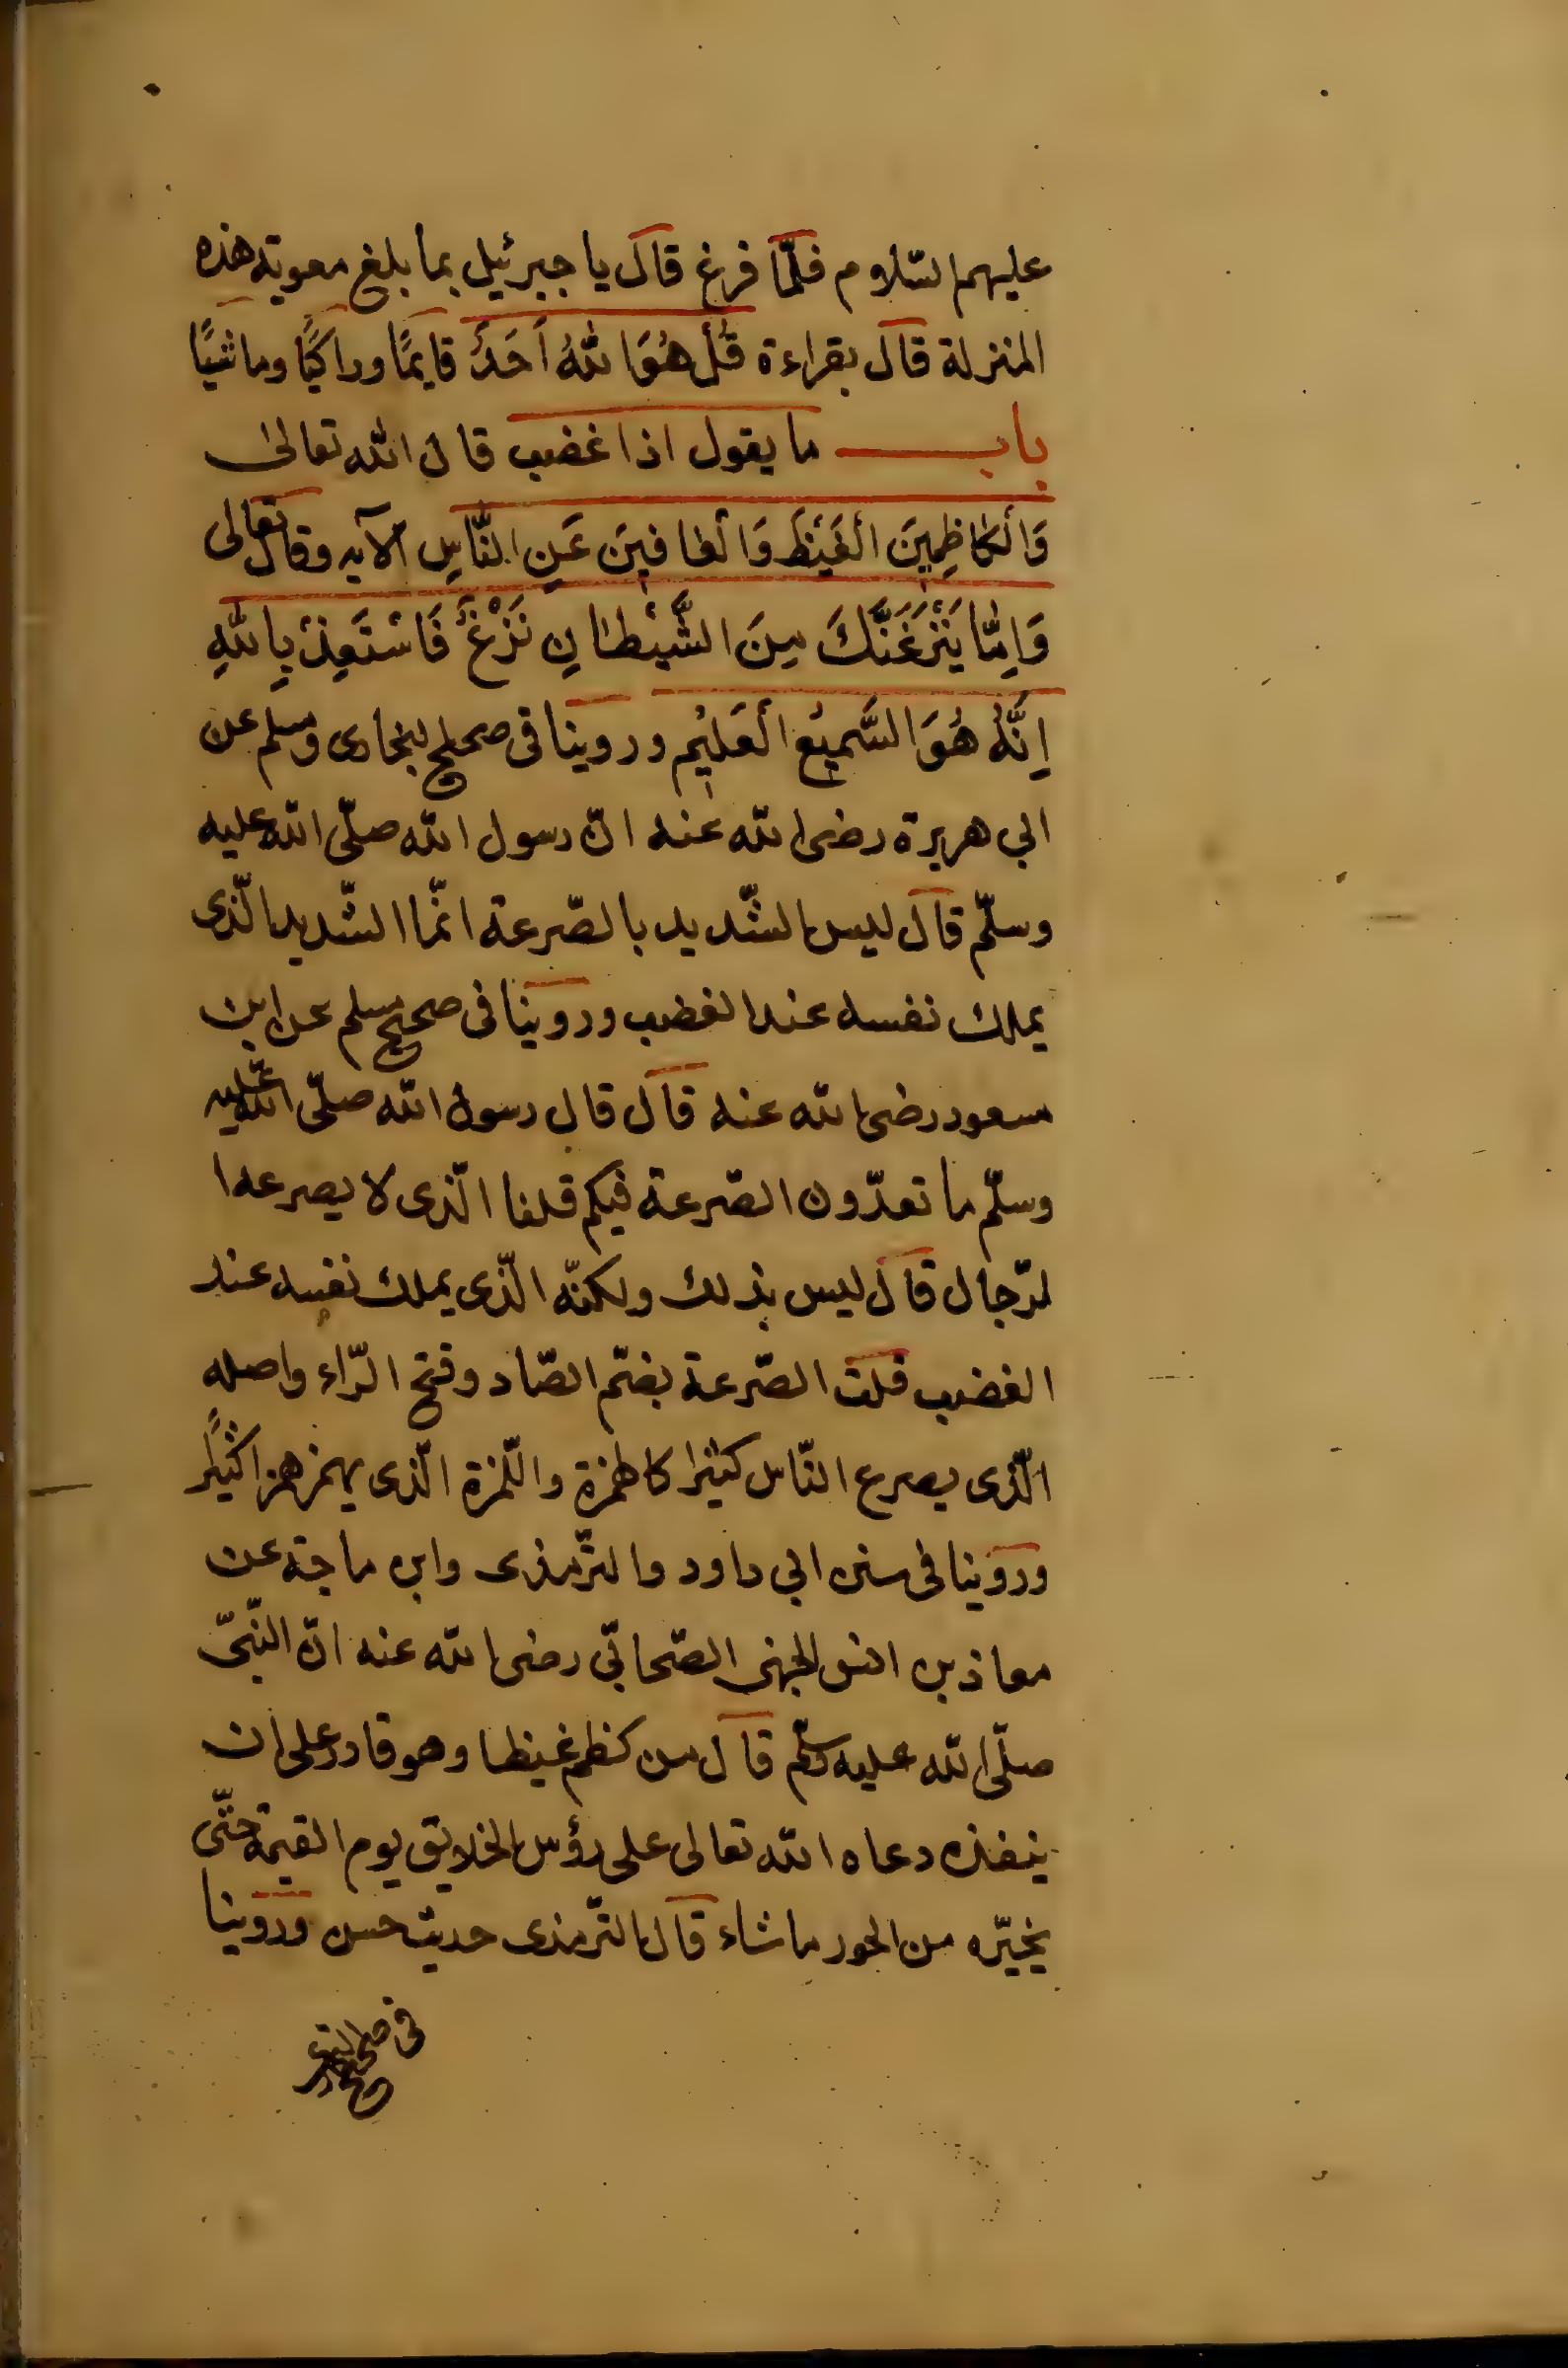 عليهم السّلام فلمّا فرغ قال يا جبرئيل بما بلغ معوية هذه
المنزلة قال بقراءة قُلْ هُوَ اللهُ اَحَدٌ قايمًا وراكبًا وماشيًا
باب ما يقول اذا غضب قال الله تعالى
وَالْكاظِمِينَ الْغَيْظَ وَالْعافينَ عَنِ النَّاسِ الآيه وقال تعالى
وَاِمَّا يَنْزَغَنَّكَ مِنَ الشَّيْطانِ نَزْغٌ فَاسْتَعِذْ بِاللهِ
اِنَّهُ هُوَ السَّمِيعُ الْعَلِيْم وروينا فى صحيح لبخارى ومسلم عن
ابي هريرة رضى الله عنه انّ رسول الله صلّى الله عليه
وسلّم قال ليس الشّديد بالصّرعة انّما الشّديد الّذى
يملك نفسه عند الغضب وروينا فى صحيح مسلم عن ابن
مسعود رضى الله عنه قال قال رسول الله صلّى الله عليه
وسلّم ما تعدّون الصّرعة فيكم قلنا الّذى لا يصرعه ا
لرّجال قال ليس بذلك ولكنّه الّذى يملك نفسه عند
الغضب قلت الصّرعة بضمّ الصّاد وفتح الرّاء واصله
الّذى يصرع النّاس كثيرا كالهمزة واللّمزة الّذى يهمز همزا كثيرًا
وروينا فى سنن ابي داود والترّمذى وابن ماجة عن
معاذ بن انس الجهنى الصّحابّي رضى الله عنه انّ النّبىّ
صلّى الله عليه وسلّم قال من كظم غيظا وهو قادر على ان
ينفذه دعاه الله تعالى على رؤس الخلايق يوم القيمة حتّى
يخيّره من الحور ما شاء قال الترّمذى حديث حسن وروينا
فى صحيح